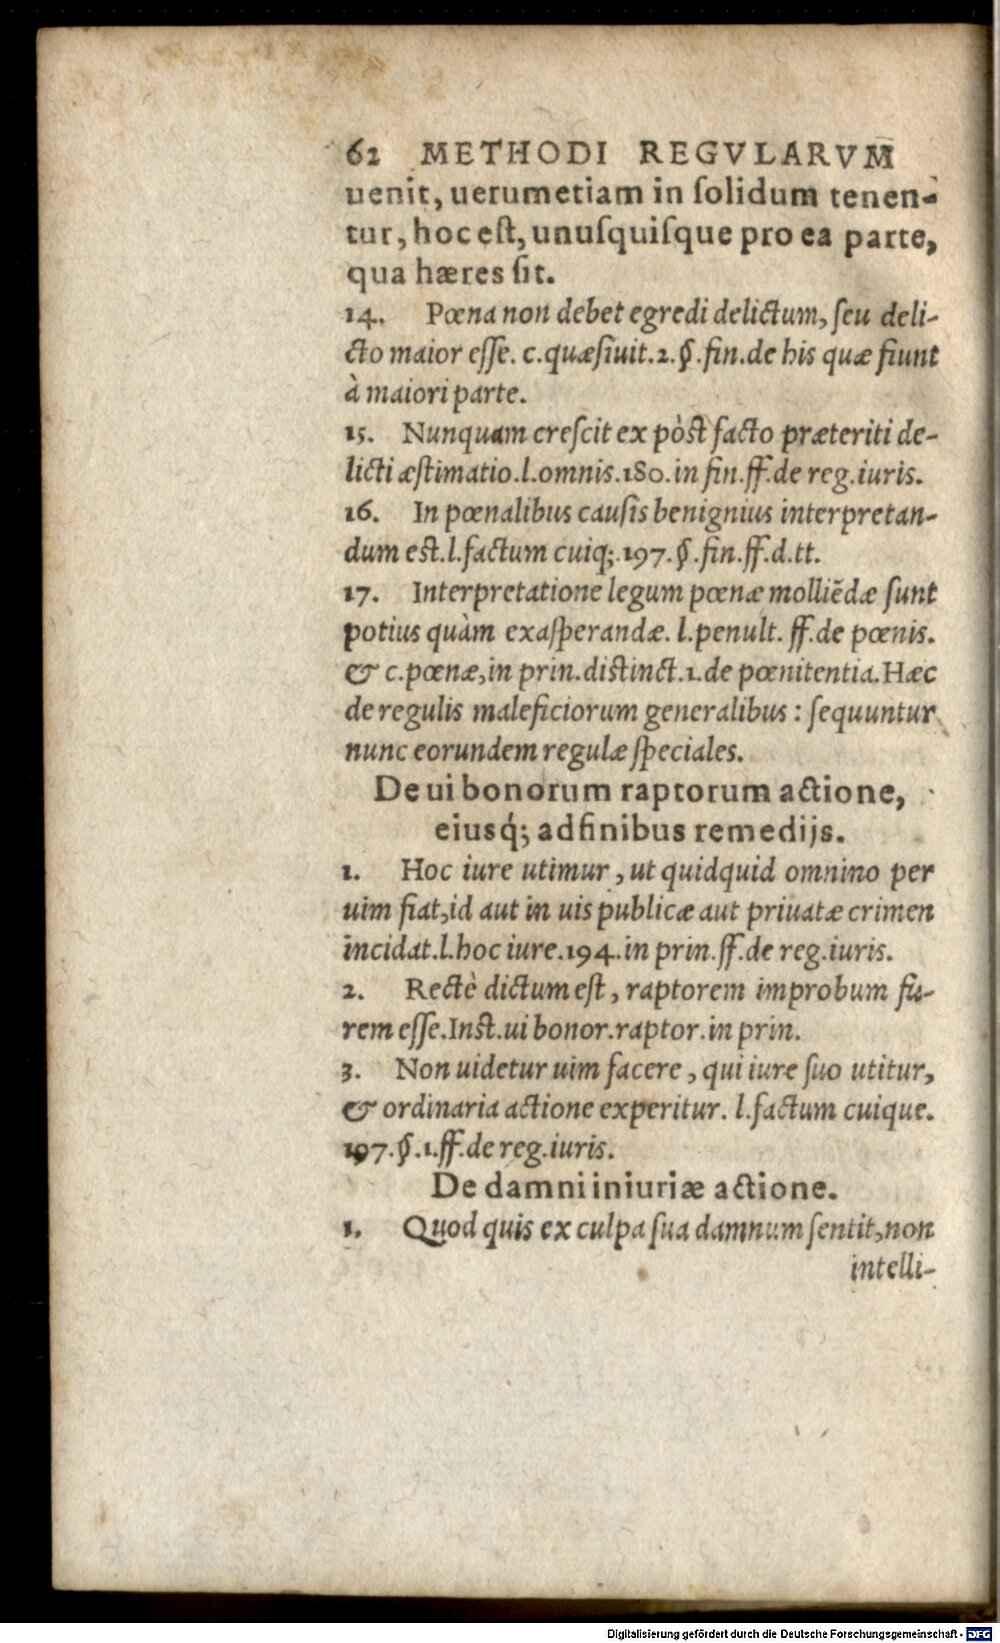 62 METHODI REGVLARVM
uenit, uerumetiam in ſolidum tenen-
tur, hoc eſt, unuſquiſque pro ea parte,
qua hæres ſit.
14. Pœna non debet egredi delictum, ſeu deli-
cto maior eſſe. c. quæſiuit. 2. §. fin. de his quæ fiunt
à maiori parte.
15. Nunquam creſcit ex pòst facto præteriti de-
licti æſtimatio. l. omnis. 180. in fin. ff. de reg. iuris.
16. In pœnalibus cauſis benignius interpretan-
dum eſt. l. factum cuiq;. 197. §. fin. ff. d. tt.
17. Interpretatione legum pœnæ molliẽdæ ſunt
potius quàm exaſperandæ. l. penult. ff. de pœnis.
& c. pœnæ, in prin. distinct. 1. de pœnitentia. Hæc
de regulis maleficiorum generalibus : ſequuntur
nunc eorundem regulæ ſpeciales.
De ui bonorum raptorum actione,
eiusq́; adfinibus remedijs.
1. Hoc iure utimur, ut quidquid omnino per
uim fiat, id aut in uis publicæ aut priuatæ crimen
incidat. l. hoc iure. 194. in prin. ff. de reg. iuris.
2. Rectè dictum eſt, raptorem improbum fu-
rem eſſe. Inst. ui bonor. raptor. in prin.
3. Non uidetur uim facere, qui iure ſuo utitur,
& ordinaria actione experitur. l. factum cuique.
197. §. 1. ff. de reg. iuris.
De damni iniuriæ actione.
1. Quod quis ex culpa ſua damnum ſentit, non
intelli-
Digitalisierung gefördert durch die Deutsche Forschungsgemeinschaft - DFG